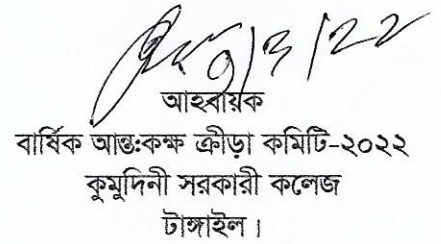 আহবায়ক
বার্ষিক আন্ত:কক্ষ ক্রীড়া কমিটি-২০২২
কুমুদিনী সরকারী কলেজ
টাঙ্গাইল।